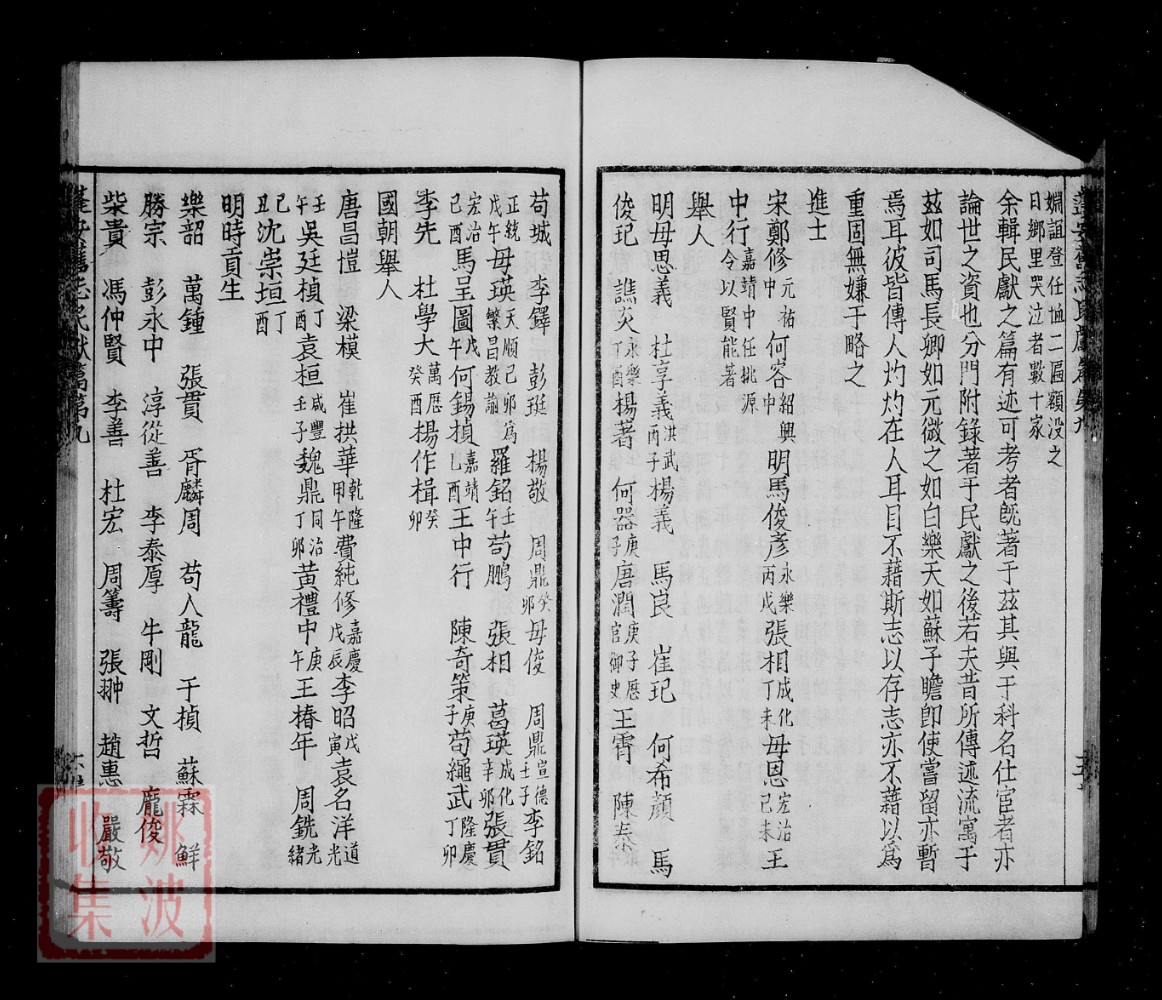 嫺誼登任恤二匾額沒之
日鄉里哭泣者數十家
余輯民獻之篇有述可考者既著于茲其與于科名仕宦者亦
論世之資也分門附錄著于民獻之後若夫昔所傳述流寓于
茲如司馬長卿如元微之如白樂天如蘇子瞻卽使嘗留亦暫
焉耳彼皆傳人灼灼在人耳目不藉斯志以存志亦不藉以爲
重固無嫌于略之
進士
宋鄭修元祐中何㟧紹興中明馬俊彥永樂丙戌張相成化丁未毋恩宏治己未王
中行嘉靖中任桃源令以賢能著
舉人
明毋思義 杜享義洪武丙子楊義 馬良 崔玘 何希顏 馬
俊玘 譙炎永樂丁酉楊著 何器庚子唐潤庚子歷官御史王霄 陳泰
苟城 李鐸 彭珽 楊敬 周鼎癸卯毋俊 周鼎宣德壬子李銘
正統戊午毋瑛天順己卯爲繁昌教諭羅銘壬午苟鵬 張相 葛瑛成化辛卯張貫
宏治己酉馬呈圖戊午何錫楨嘉靖己酉王中行 陳奇策庚子苟繩武隆慶丁卯
李先 杜學大萬厯癸酉楊作楫癸卯
國朝舉人
唐昌愷 梁模 崔拱華乾隆甲午費純修嘉慶戊辰李昭戊寅袁名洋道光
壬午吳廷楨丁酉袁桓咸豐壬子魏鼎同治丁卯黄禮中庚午王椿年 周銑光緒
己丑沈崇垣丁酉
明時貢生
樂韶 萬鍾 張貫 胥麟周 苟人龍 干楨 蘇霖 鮮
勝宗 彭永中 淳從善 李泰厚 牛剛 文哲 龐俊
柴貴 馮仲賢 李善 杜宏 周籌 張翀 趙惠 嚴敬
蓬安舊志民獻篇第九
姚波
收集